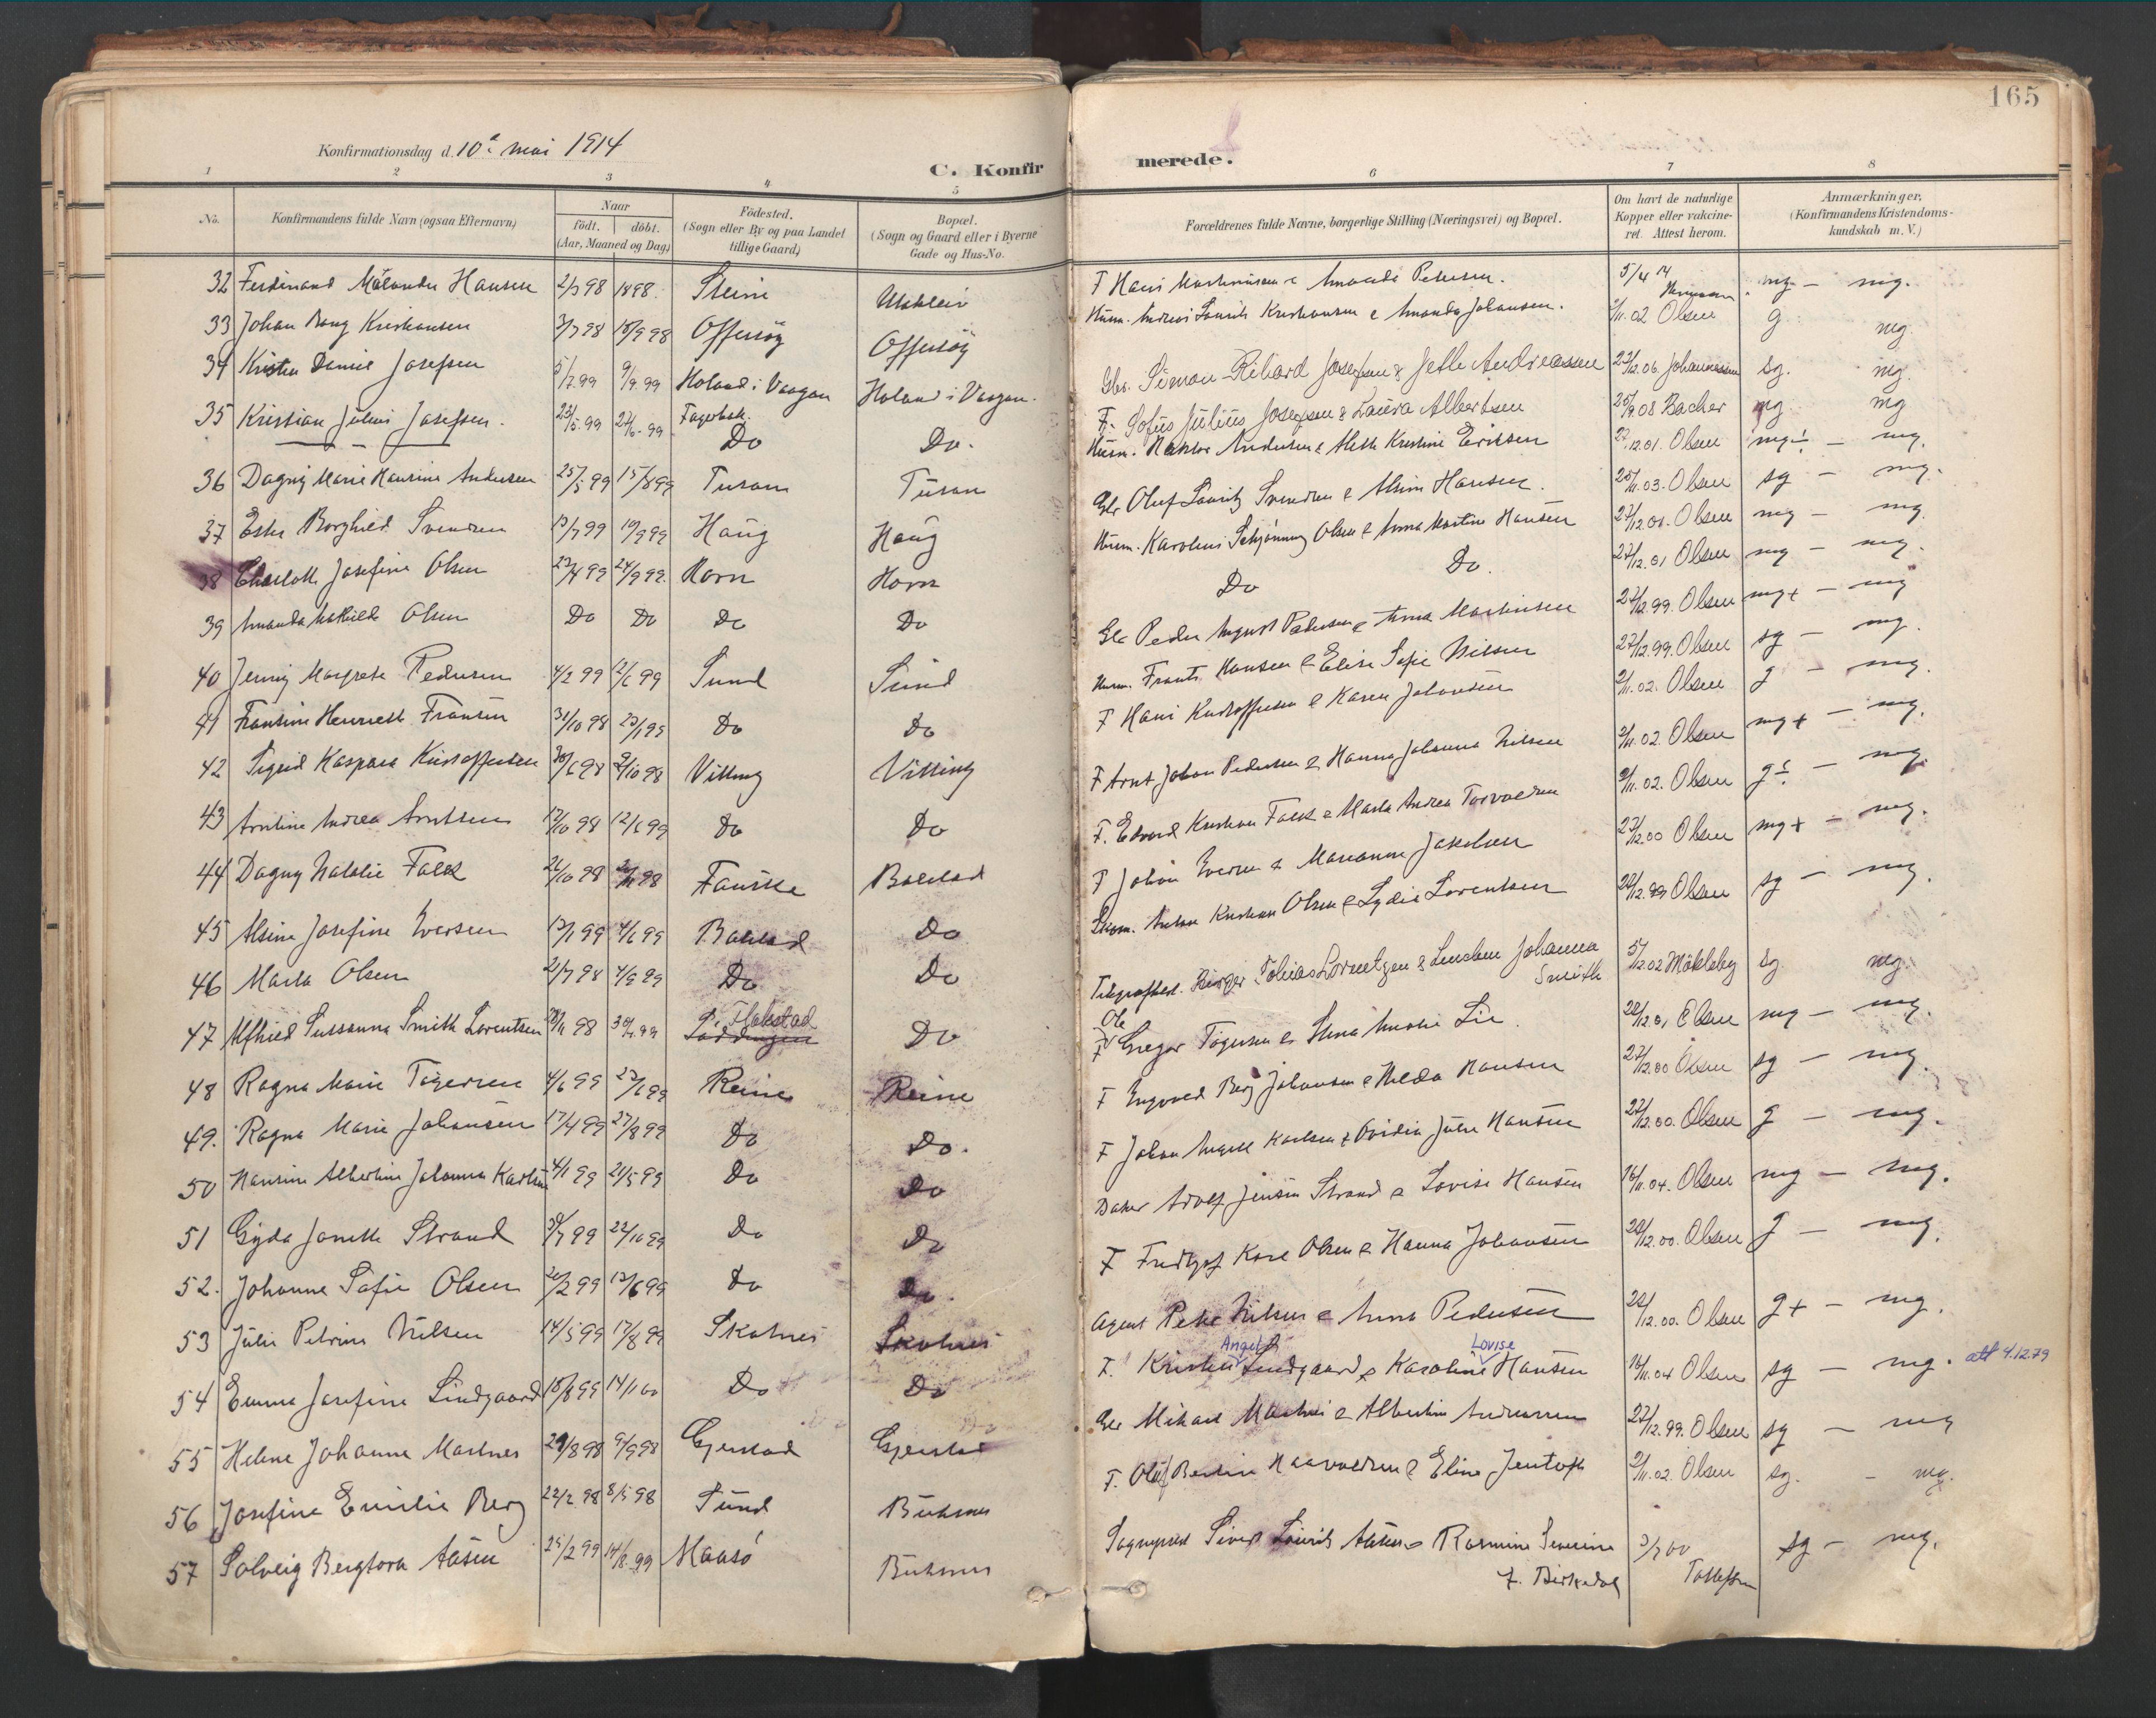 165
Konfirmationsdag d. 10de mai 1914
C. Konfirmerede.
1 2 3 4 5 6 7 8
No. Konfirmandens fulde Navn (ogsaa Efternavn) Naar født. døbt. (Aar, Maaned og Dag) Fødested. (Sogn eller By og paa Landet tillige Gaard) Bopæl. (Sogn og Gaard eller i Byerne Gade og Hus-No. Forældrenes fulde Navne, borgerlige Stilling (Næringsvei) og Bopæl. Om havt de naturlige Kopper eller vakcineret. Attest herom. Anmærkninger, (Konfirmandens Kristendomskundskab m. V.)
32 Ferdinand Hansen 2/3 98 Steine F Hans & Amanda Pedersen. 5/4 14 mg - mg.
33 Johan Bang Kristiansen 3/7 98 18/9 98 Offersøy Offersøy Husm. Andreas Laurits Kristiansen & Amanda Johansen. 2/11.02 Olsen g mg.
34 Kristen Daniel Josefsen 5/7.99 9/9.99 Holand i Vaagan Holand i Vaagan. Gbr. Simon Rikard Josefsen & Jette Andreassen 27/12.06 Johannessen sg. mg.
35 Kristian Julius Josefsen. 23/5.99 Do Do. F. Sofus Julius Josefsen & Laura Albertsen 25/9 08 Backer mg. mg
36 Dagny Marie Hansine Andersen 25/5 99 15/8 99 Tusan Tusan Husm. Andersen & Kristine Eriksen 27.12.01. Olsen mg - mg.
37 Ester Borghild Svendsen 13/7 99 10/9 99 Haug Haug Gbr Oluf Lauritz Svendsen & Hansen. 25/11.03. Olsen sg - mg.
38 Charlotte Josefine Olsen 23/4 99 24/9 99. Horn Horn Husm. Karolius Schjønning Olsen & Anna Martine Hansen 27/12.01. Olsen mg - mg
39 Amanda Mathilde Olsen Do Do Do Do Do Do. 27/12.01 Olsen mg - mg.
40 Jenny Margrete Pedersen 4/2 99 12/6 99 Sund Sund Gbr Peder August Pedersen & Anna Martinsen 27/12.99. Olsen mg+ - mg
41 Fransine Henriette Fransen 31/10 98 23/1 99 Do Do Husm. Frants Hansen & Elise Sofie Nilsen 27/12.99. Olsen sg - mg.
42 Sigrid Kaspara Kristoffersen 30/6 98 9/10 98 Vitting Vitting F Hans Kristoffersen & Karen Johansen 2/11.02. Olsen g - mg.
43 Arntine Andrea Arntsen 12/10 98 12/6 99 Do Do F Arnt Johan Pedersen & Hanna Johanna Nilsen 2/11.02. Olsen mg+ - mg.
44 Dagny Natalie Falck 26/10 98 98 Fauske Balstad F. Edvard Kristian Falck & Marta Andrea Torvaldsen 2/11.02. Olsen g - mg.
45 Alsine Josefine Iversen 13/1 99 4/6 99 Balstad Do F Johan Iversen & Marianne Jakobsen 27/12.00 Olsen mg+ - mg.
46 Marta Olsen 21/7 98 4/6 99 Do Do Anton Kristian Olsen & Lydia Lorentsen 28/12.99 Olsen sg - mg.
47 Alfhild Sussanna Smith Lorentsen 28/11 98 30/4.99 Flakstad Do Telegrafbest. Birger Tobias Lorentzen & Lenchen Johanna Smith 5/12.02 Møkleby sg. mg.
48 Ragna Marie Tøgersen 4/6 99 23/6 99 Reine Reine F Ole Gregor Tøgersen & Stina Amalie Lie. 28/12.01 Olsen mg - mg.
49. Ragna Marie Johansen 17/4 99 27/8 99 Do Do. F Ingvald Berg Johansen & Helda Hansen 27/12.00 Olsen sg - mg.
50 Hansine Albertine Johanna Karlsen 4/1 99 21/5 99 Do Do F Johan Angell Karlsen & Ovidia Julie Hansen 27/12.00. Olsen g - mg.
51 Gyda Janette Strand 30/7 99 22/10 99 Do Do Baker Adolf Jensen Strand & Lovise Hansen 16/11.04. Olsen mg - mg.
52. Johanne Sofie Olsen 20/2 99 13/6 99 Do Do. F Fridtjof Karl Olsen & Hanna Johansen 28/12.00. Olsen g - mg.
53 Julie Petrine Nilsen 14/5 99 17/8 99 Skotnes Skotnes Agent Peter Nilsen & Anna Pedersen 28/12.00. Olsen g+ - mg.
54 Emma Josefine Lindgaard 18/8 99 14/1 00 Do Do F. Kristen Angell Lindgaard & Karoline Lovise Hansen 16/11.04 Olsen sg - mg. att 4.12.79
55 Helene Johanne Martnes 29/8 98 9/9 98 Gjerstad Gjerstad Gbr Mikael Martnes & Albertine Andreassen 27/12.99. Olsen sg - mg
56 Josefine Emilie Berg 22/2.98 8/5 98 Sund Buksnes F. Oluf Bertin Haavaldsen & Eline Jentoft 2/11.02. Olsen sg. - mg.
57 Solveig Bergtora Aasen 25/2 99 14/8.99 Maasö Buksnes Sogneprest Sivert Laurits Aasen & Rasmine Severine f. Birkedal 3/7 00 Tollefsen sg - mg.